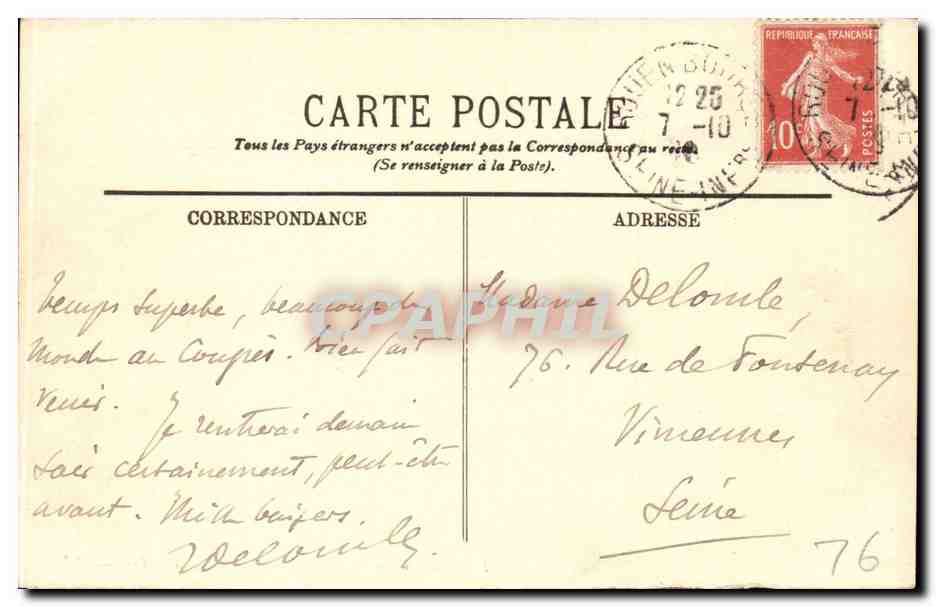 CARTE POSTALE
Tous les Pays étrangers n'acceptent pas la Correspondance au recto
(Se renseigner à la Poste).
REPUBLIQUE FRANÇAISE
10c
POSTES
ROUEN BOURSE
12 25
7 -10
SEINE-INFRE
12 25
7 -10
CORRESPONDANCE
Temps superbe, beaucoup de
monde au Congrès. Bien fait
venir.
Je rentrerai demain
soir certainement, peut-être
avant. Mille baisers.
Delomble
ADRESSE
Madame Delomble,
76. Rue de Fontenay
Vincennes
Seine
76
CPAPHIL